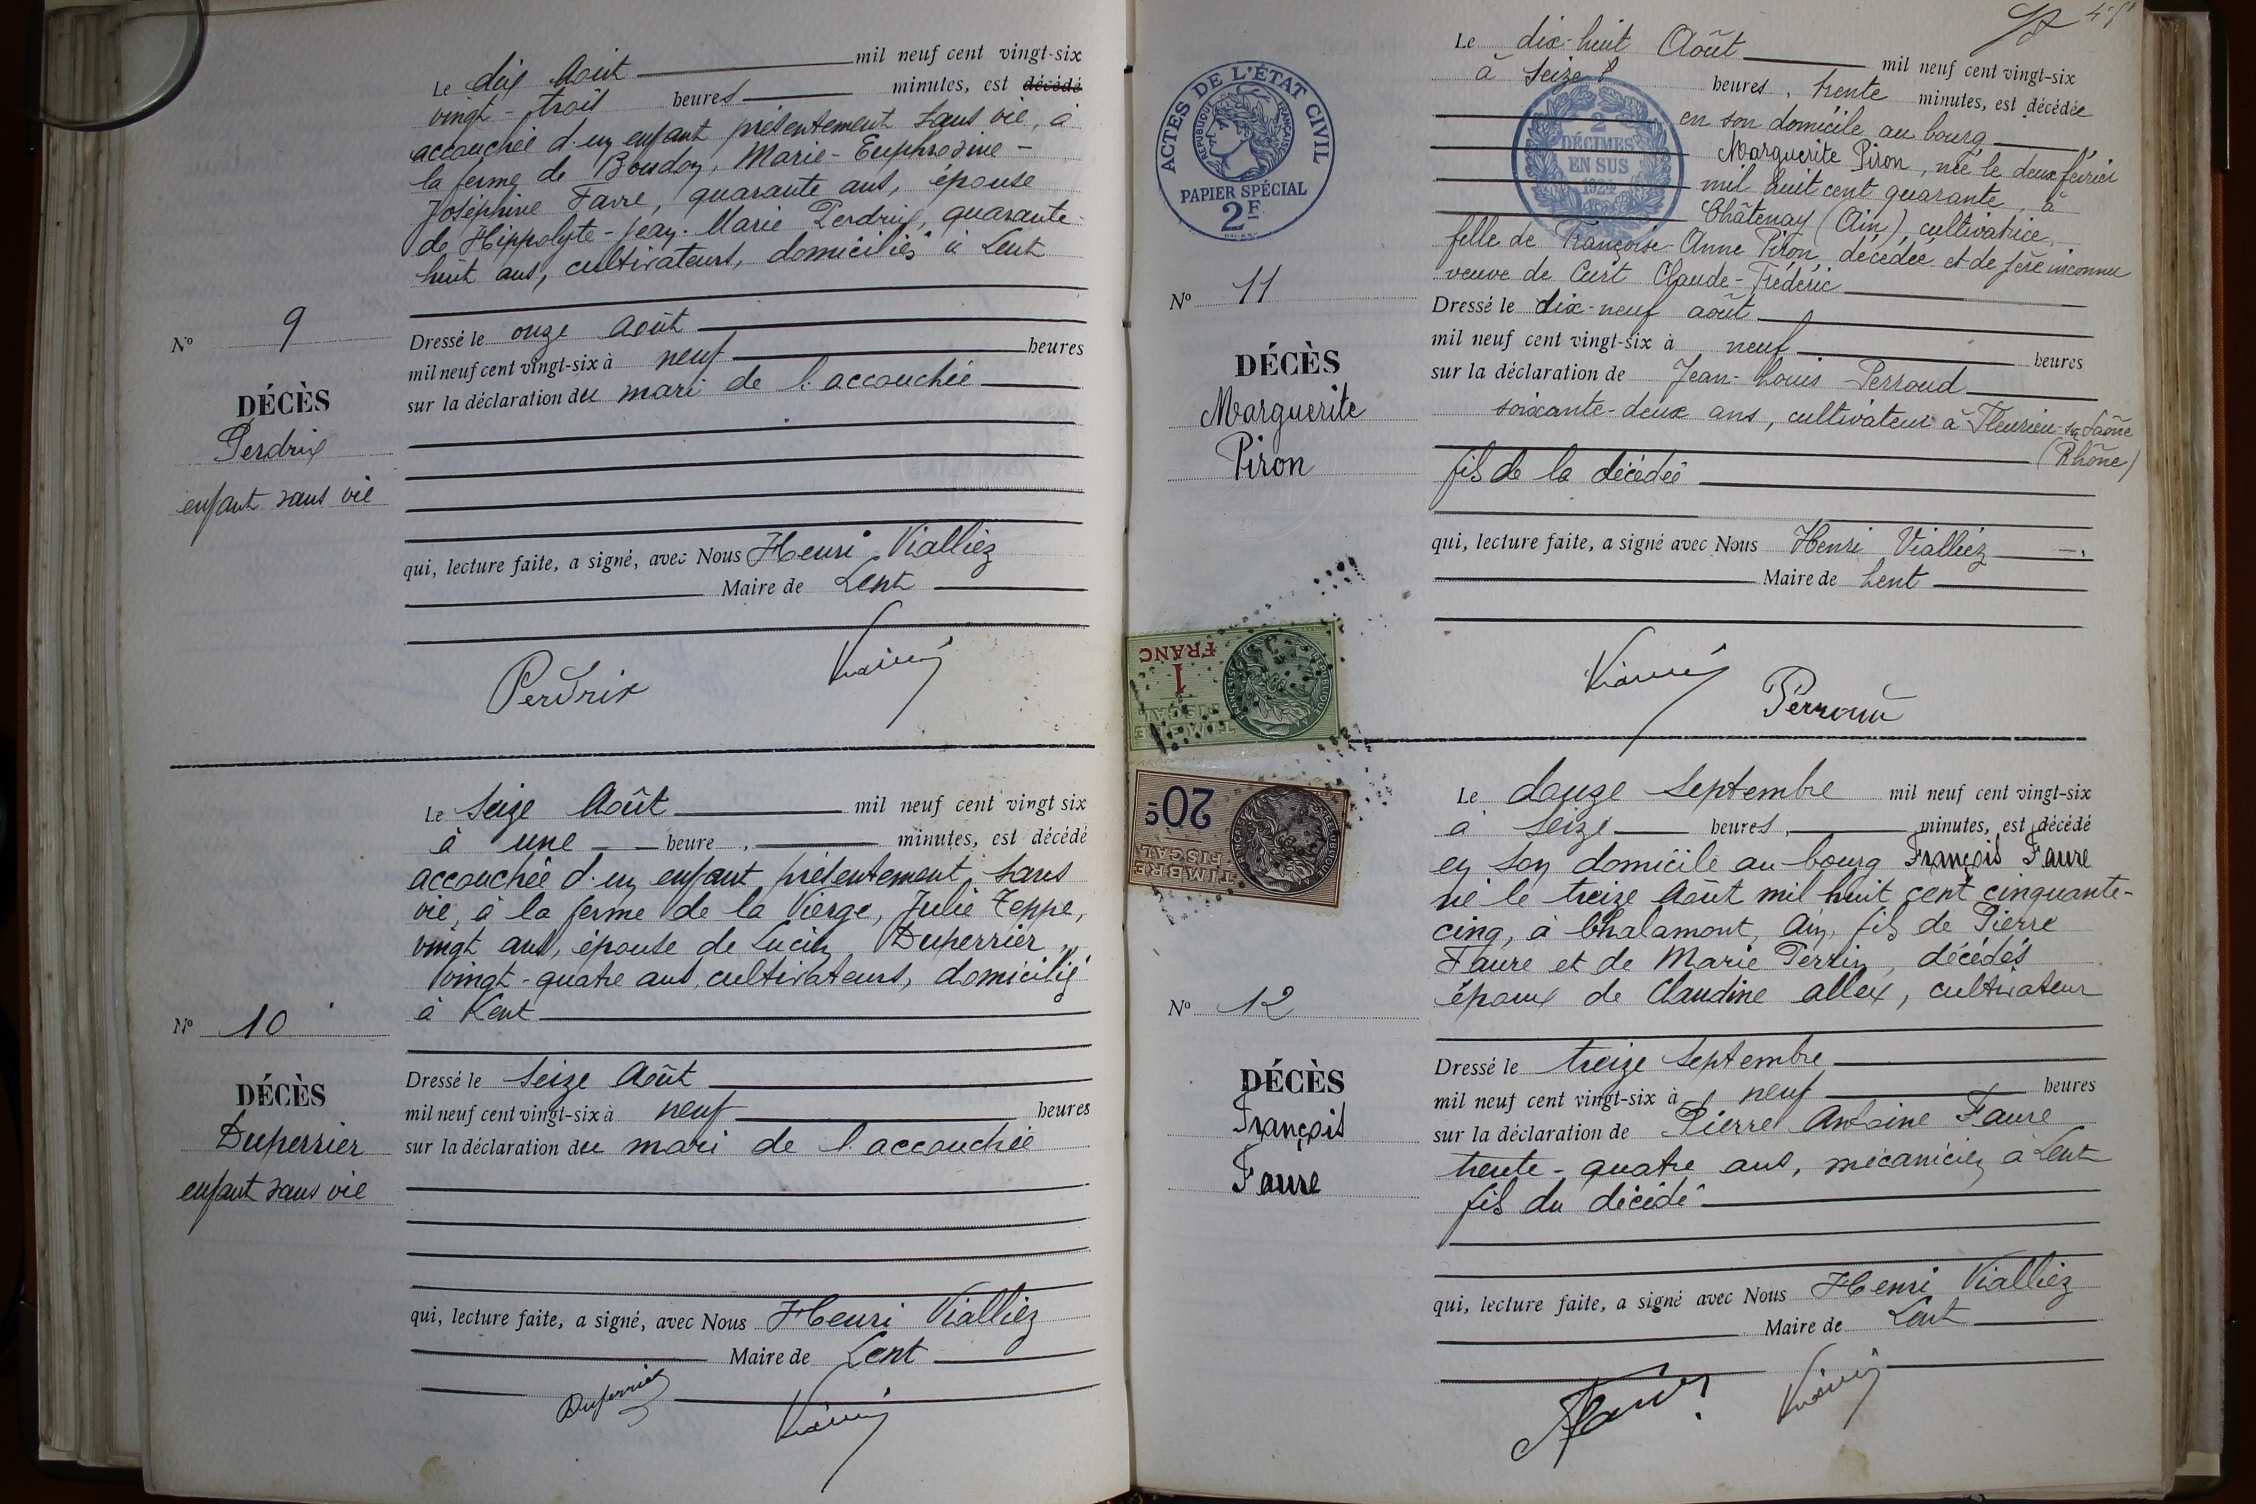 Le dix Août mil neuf cent vingt-six
vingt-trois heures minutes, est décédé
accouchée d'un enfant présentement sans vie, à
la ferme de Boudon, Marie-Euphrosine-
Joséphine Favre, quarante ans, épouse
de Hippolyte-Jean-Marie Perdrix, quarante-
huit ans, cultivateurs, domiciliés à Lent
No 9
DÉCÈS
Perdrix
enfant sans vie
Dressé le onze Août
mil neuf cent vingt-six à neuf heures
sur la déclaration du mari de l'accouchée
qui, lecture faite, a signé, avec Nous Henri Vialliez
Maire de Lent
Perdrix
Le Seize Août mil neuf cent vingt six
à une heure, minutes, est décédé
accouchée d'un enfant présentement sans
vie, à la ferme de la Vierge, Julie Teppe,
vingt ans, épouse de Lucien Duperrier,
vingt-quatre ans, cultivateurs, domiciliés
à Lent
No 10
DÉCÈS
Duperrier
enfant sans vie
Dressé le Seize Août
mil neuf cent vingt-six à neuf heures
sur la déclaration du mari de l'accouchée
qui, lecture faite, a signé, avec Nous Henri Vialliez
Maire de Lent
Duperrier
ACTES DE L'ÉTAT CIVIL
RÉPUBLIQUE FRANÇAISE
PAPIER SPÉCIAL
2F
2
DÉCIMES
EN SUS
Le dix-huit Août mil neuf cent vingt-six
à Seize heures, trente minutes, est décédée
en son domicile au bourg
Marguerite Piron, née le deux février
mil huit cent quarante, à
Châtenay (Ain), cultivatrice,
fille de Françoise-Anne Piron, décédée et de père inconnu
veuve de Curt Claude-Frédéric
No 11
DÉCÈS
Marguerite
Piron
Dressé le dix-neuf août
mil neuf cent vingt-six à neuf heures
sur la déclaration de Jean-Louis Perroud
soixante-deux ans, cultivateur à Fleurieu-s/-Saône
(Rhône)
fils de la décédée
qui, lecture faite, a signé avec Nous Henri Vialliez
Maire de Lent
Perroud
1
FRANC
TIMBRE
FISCAL
20c
TIMBRE
FISCAL
Le douze Septembre mil neuf cent vingt-six
à seize heures, minutes, est décédé
en son domicile au bourg François Faure
né le treize Août mil huit cent cinquante-
cinq, à Chalamont, Ain, fils de Pierre
Faure et de Marie Perrin, décédés
époux de Claudine Allex, cultivateur
No 12
DÉCÈS
François
Faure
Dressé le treize Septembre
mil neuf cent vingt-six à neuf heures
sur la déclaration de Pierre Antoine Faure
trente-quatre ans, mécanicien à Lent
fils du décédé
qui, lecture faite, a signé avec Nous Henri Vialliez
Maire de Lent